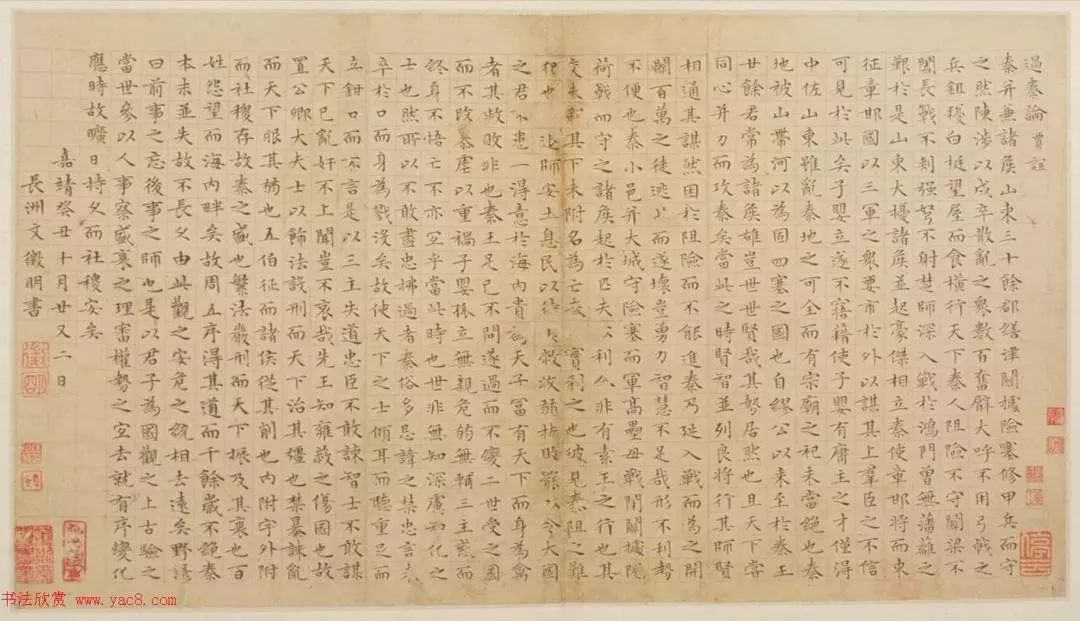 過秦論 賈誼
秦并兼諸侯山東三十餘郡繕津關據險塞修甲兵而守
之然陳涉以戍卒散亂之衆數百奮臂大呼不用弓戟之
兵鉏櫌白梃望屋而食橫行天下秦人阻險不守關梁不
闔長戟不刺强弩不射楚師深入戰於鴻門曾無藩蘺之
艱於是山東大擾諸侯並起豪傑相立秦使章邯將而東
征章邯國以三軍之衆要市於外以謀其上羣臣之不信
可見於此矣子嬰立遂不寤藉使子嬰有庸主之才僅得
中佐山東雖亂秦地之可全而有宗廟之祀未當絕也秦
地被山帶河以為固四塞之國也自繆公以來至於秦王
廿餘君常為諸侯雄豈世世賢哉其勢居然也且天下嘗
同心并力而攻秦矣當此之時賢智並列良將行其師賢
相通其謀然困於阻險而不能進秦乃延入戰而為之開
關百萬之徒逃北而遂壞豈勇力智慧不足哉形不利勢
不便也秦小邑并大城守險塞而軍高壘毋戰閉關據阨
荷戟而守之諸侯起於匹夫以利合非有素王之行也其
交未親其下未附名為亡秦 實利之也彼見秦阻之難
犯也 退師安土息民以待 救收弱扶時罷以令大國
之君不患不得意於海內貴為天子富有天下而身為禽
者其救敗非也秦王足己不問遂過而不變二世受之因
而不改暴虐以重禍子嬰孤立無親危弱無輔三主惑而
終身不悟亡不亦宜乎當此時也世非無知深慮知化之
士也然所以不敢盡忠拂過者秦俗多忌諱之禁忠言未
卒於口而身為戮沒矣故使天下之士傾耳而聽重足而
立鉗口而不言是以三主失道忠臣不敢諫智士不敢謀
天下已亂奸不上聞豈不哀哉先王知雍蔽之傷國也故
置公卿大夫士以飾法設刑而天下治其彊也禁暴誅亂
而天下服其弱也五伯征而諸侯從其削也內附守外附
而社稷存故秦之盛也繁法嚴刑而天下振及其衰也百
姓怨望而海內畔矣故周五序得其道而千餘歲不絕秦
本末並失故不長久由此觀之安危之統相去遠矣野諺
曰前事之忘後事之師也是以君子為國觀之上古驗之
當世參以人事察盛衰之理審權勢之宜去就有序變化
應時故曠日持久而社稷安矣
嘉靖癸丑十月廿又二日
長洲文徵明書
书法欣赏 www.yac8.com